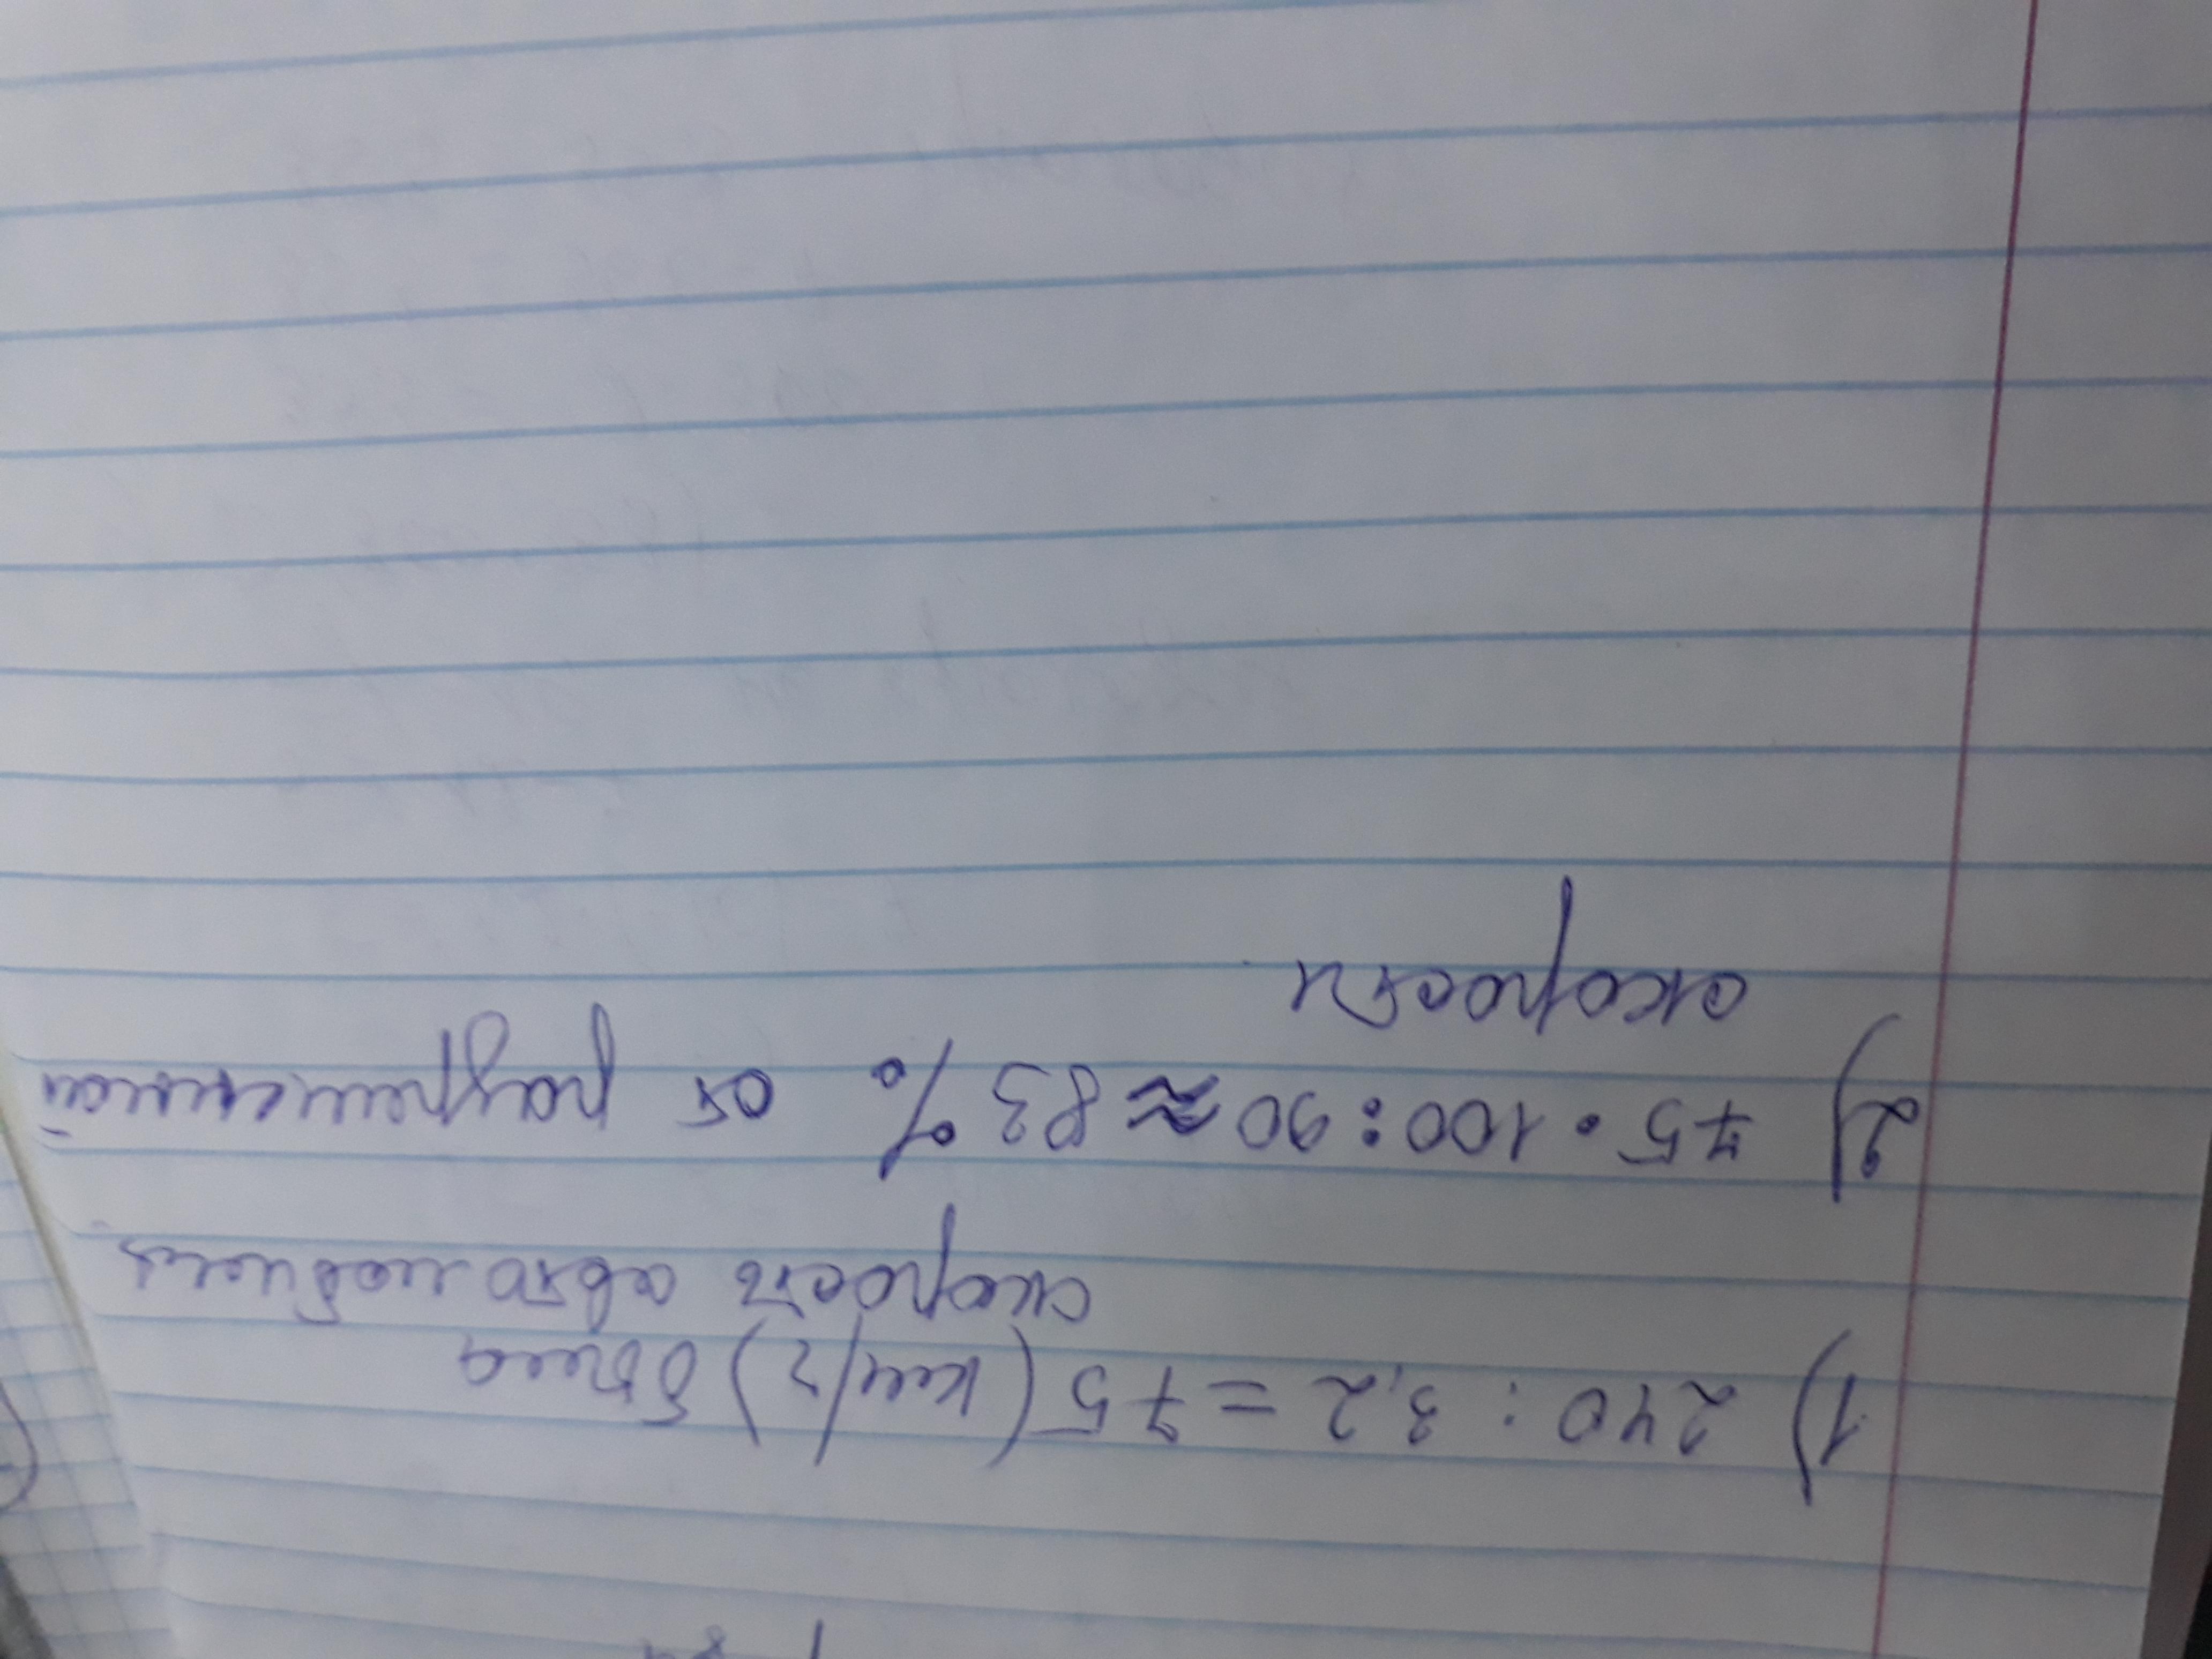 1) 240 : 3,2 = 75 (км/г) была
скорость автомобиля
2) 75 • 100 : 90 ≈ 83 % от разрешенной
скорости